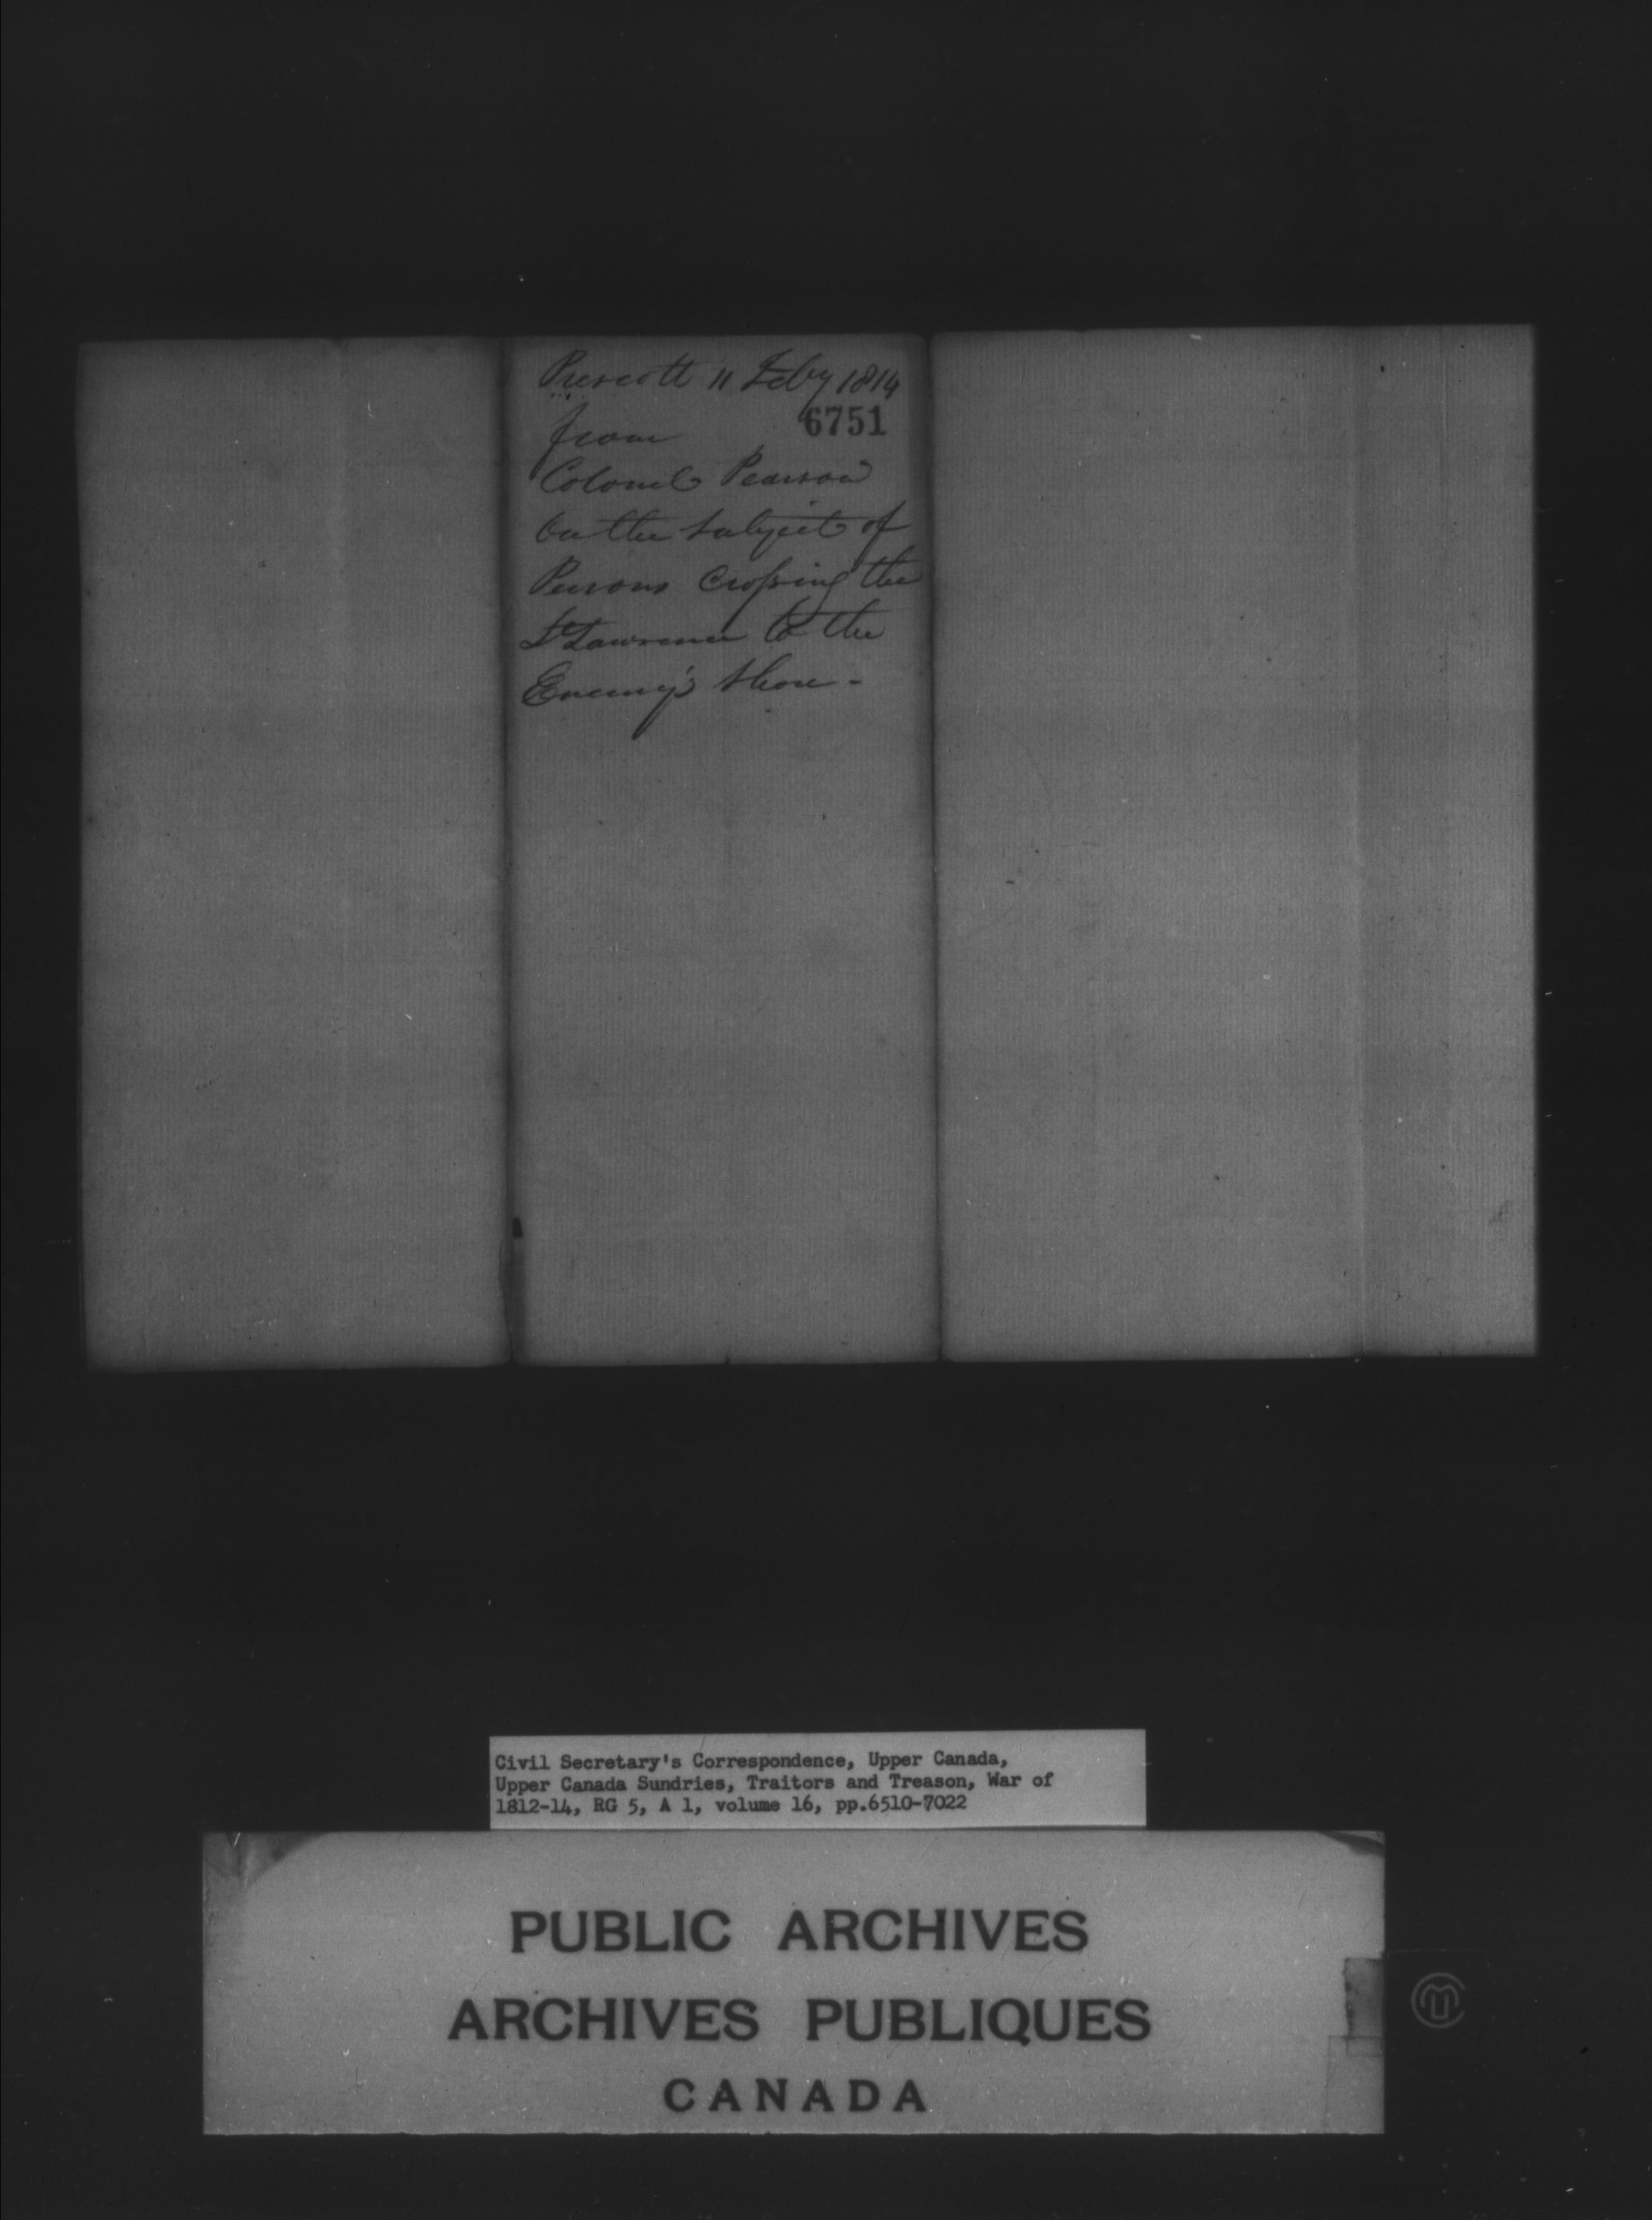 Prescott 11 Feby 1814
6751
from
Colonel Pearson
On the subject of
Persons Crossing the
St Lawrence to the
Enemy's Shore -
Civil Secretary's Correspondence, Upper Canada,
Upper Canada Sundries, Traitors and Treason, War of
1812-14, RG 5, A 1, volume 16, pp.6510-7022
PUBLIC ARCHIVES
ARCHIVES PUBLIQUES
CANADA